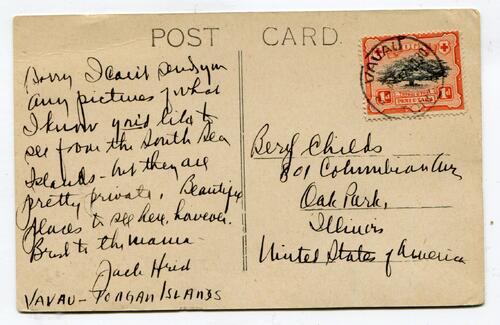 POST CARD.
Sorry I can't send you
any pictures of what
I know you'd like to
see from the South Sea
Islands - but they are
pretty private. Beautiful
places to see here, however.
Best to the mama -
Jack
VAVAU - TONGAN ISLANDS
VAVAU
1d 1d
Childs
801 Columbian Ave
Oak Park,
Illinois
United States of America